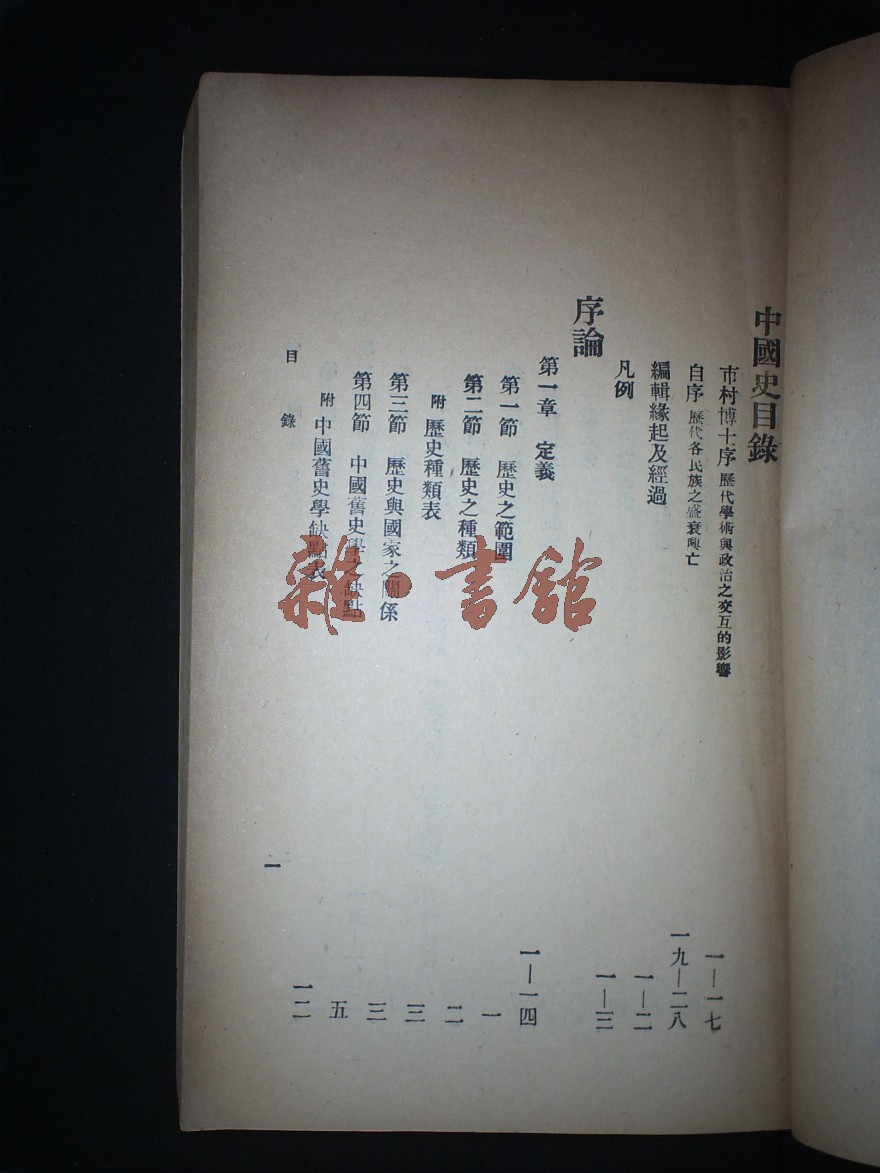 中國史目錄
市村博士序 歷代學術與政治之交互的影響 一—一七
自序 歷代各民族之盛衰興亡 一九—二八
編輯緣起及經過 一—二
凡例 一—三
序論
第一章 定義 一—一四
第一節 歷史之範圍 一
第二節 歷史之種類 二
附 歷史種類表 三
第三節 歷史與國家之關係 三
第四節 中國舊史學之缺點 五
附 中國舊史學缺點表 一二
目錄 一
雜·書館